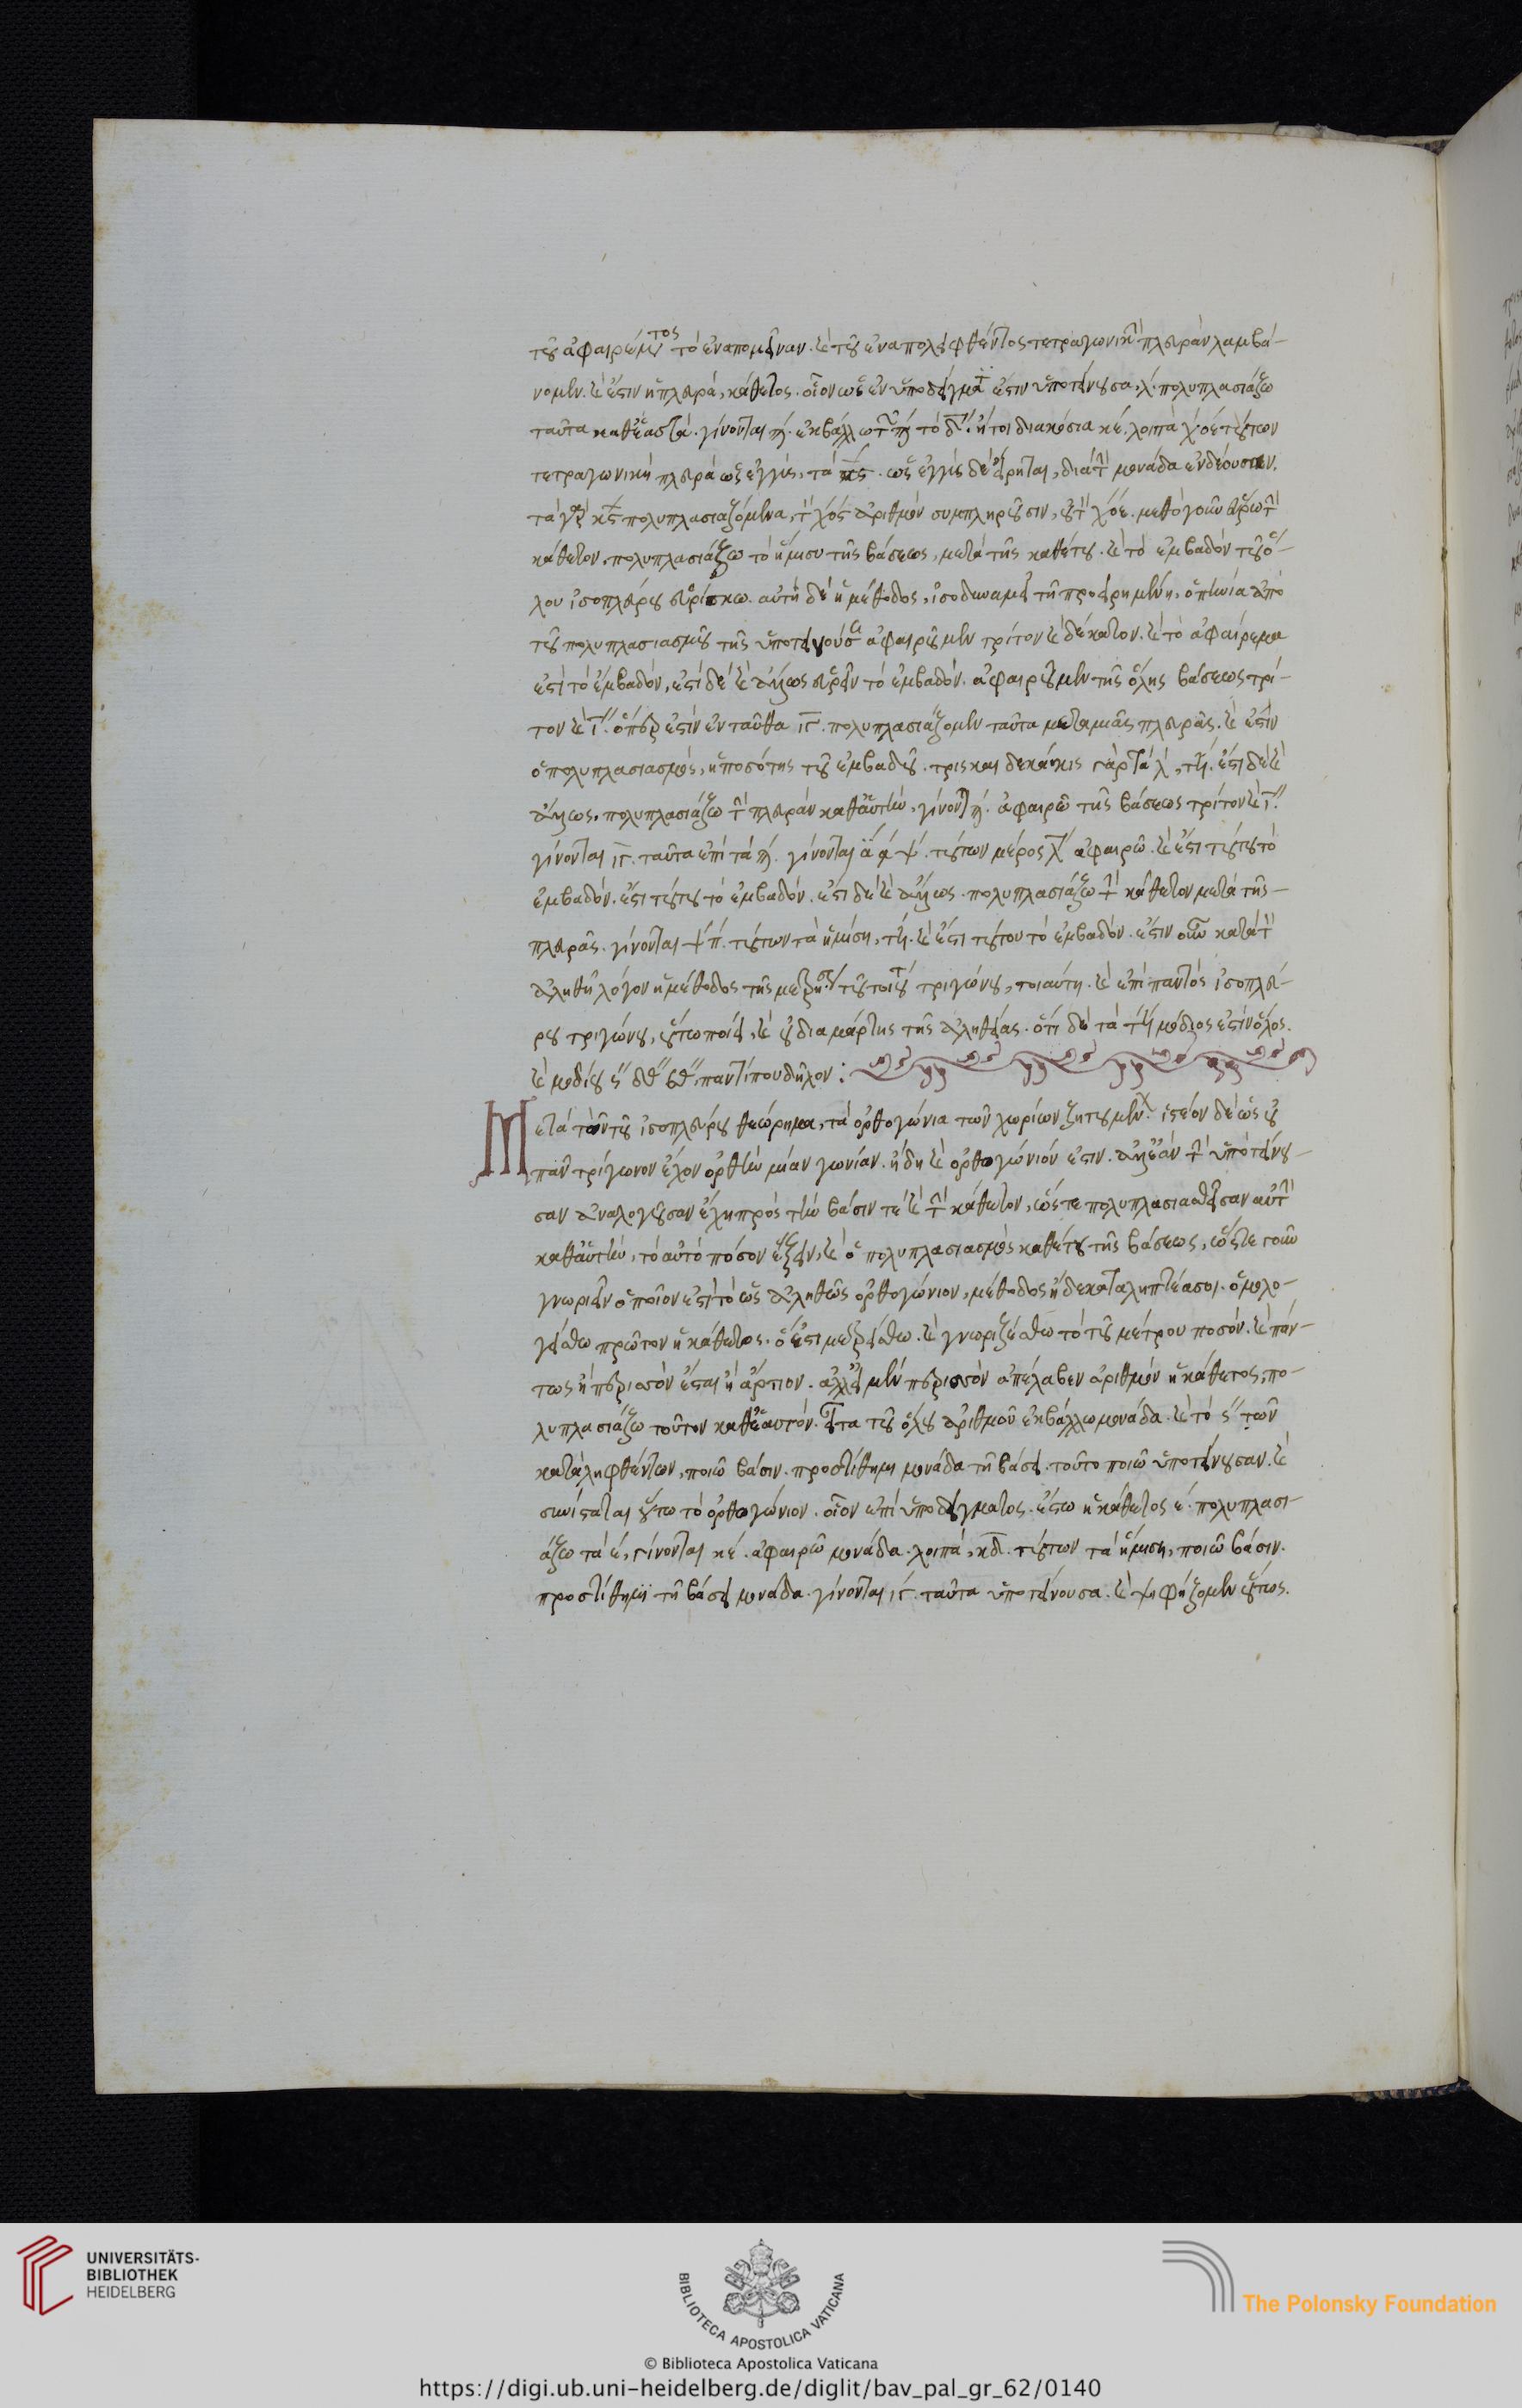 τοῦ ἀφαιρέματος τὸ ἐναπομεῖναν. καὶ τοῦ ἐναπολειφθέντος τετραγωνικὴν πλευρὰν λαμβά-
νομεν. καὶ ἔστιν ἡ πλευρά, κάθετος. οἷον ὡς ἐν ὑποδείγματι ἔστιν ὑποτείνουσα, λ. πολυπλασιάζω
ταῦτα καθ' ἑαυτά. γίνονται ϡ. ἐκβάλλω τῶν ϡ τὸ δ'' ἤτοι διακόσια κε. λοιπὰ χοε τούτων
τετραγωνικὴ πλευρὰ ὡς ἔγγις, τὰ κϛ. ὡς ἔγγις δὲ εἴρηται, διὰ τὴν μονάδα ἐνδέουσαν.
τὰ γὰρ κϛ πολυπλασιαζόμενα, τὸν χος ἀριθμὸν συμπληροῦσιν, οὐ τὸν χοε. μεθ' ὃ γοῦν εὕρω τὴν
κάθετον. πολυπλασιάζω τὸ ἥμισυ τῆς βάσεως, μετὰ τῆς καθέτου. καὶ τὸ ἐμβαδὸν τοῦ ὅ-
λου ἰσοπλεύρου εὑρίσκω. αὕτη δὲ ἡ μέθοδος, ἰσοδυναμεῖ τῇ προειρημένῃ, ὁπηνίκα ἀπὸ
τοῦ πολυπλασιασμοῦ τῆς ὑποτεινούσης ἀφαιροῦμεν τρίτον καὶ δέκατον. καὶ τὸ ἀφαίρεμα
ἐστὶ τὸ ἐμβαδόν, ἔστι δὲ καὶ ἄλλως εὑρεῖν τὸ ἐμβαδόν. ἀφαιροῦμεν τῆς ὅλης βάσεως τρί-
τον καὶ ι''. ὅπερ ἐστὶν ἐνταῦθα ιγ. πολυπλασιάζομεν ταῦτα μετὰ μιᾶς πλευρᾶς. καὶ ἔστιν
ὁ πολυπλασιασμός, ἡ ποσότης τοῦ ἐμβαδοῦ. τρις καὶ δεκάκις γὰρ τὰ λ, τϟ. ἔστι δὲ καὶ
ἄλλως. πολυπλασιάζω τὴν πλευρὰν καθ' αὑτήν, γίνονται ϡ. ἀφαιρῶ τῆς βάσεως τρίτον καὶ ι''.
γίνονται ιγ. ταῦτα ἐπὶ τὰ ϡ. γίνονται α αψ. τούτων μέρος λ' ἀφαιρῶ. καὶ ἔστι τοῦτο τὸ
ἐμβαδόν. ἔστι τοῦτο τὸ ἐμβαδόν. ἔστι δὲ καὶ ἄλλως. πολυπλασιάζω τὴν κάθετον μετὰ τῆς
πλευρᾶς. γίνονται ψπ. τούτων τὰ ἥμιση, τϟ. καὶ ἔστι τοῦτον τὸ ἐμβαδόν. ἔστιν οὖν κατὰ τὸν
ἀληθῆ λόγον ἡ μέθοδος τῆς μετρήσεως τοῦ τοιούτου τριγώνου, τοιαύτη. καὶ ἐπὶ παντὸς ἰσοπλεύ-
ρου τριγώνου, οὕτω ποίει, καὶ οὐ διαμάρτῃς τῆς ἀληθείας. ὅτι δὲ τὰ τϟ μόδιος ἐστὶν ὅλος.
καὶ μοδίου παντί που δῆλον:
Μετὰ τὸ τοῦ ἰσοπλεύρου θεώρημα, τὰ ὀρθογώνια τῶν χωρίων ζητοῦμεν. ἰστέον δὲ ὡς οὐ
πᾶν τρίγωνον ἔχον ὀρθὴν μίαν γωνίαν. ἤδη καὶ ὀρθογώνιόν ἐστιν. ἀλλ' ἐὰν τὴν ὑποτείνου-
σαν ἀναλογοῦσαν ἔχῃ πρὸς τὴν βάσιν τὲ καὶ τὴν κάθετον, ὥστε πολυπλασιασθεῖσαν αὐτὴν
καθ' αὑτήν, τὸ αὐτὸ πόσον ἕξειν, καὶ ὁ πολυπλασιασμὸς καθέτου τῆς βάσεως, ὥστε γοῦν
γνωριεῖν ὁποῖον ἐστὶ τὸ ὡς ἀληθῶς ὀρθογώνιον, μέθοδος ἥδε καταληπτέα σοι. ὁμολο-
γείσθω πρῶτον ἡ κάθετος. ὅ ἐστι μετρείσθω. καὶ γνωριζέσθω τὸ τοῦ μέτρου ποσόν. καὶ πάν-
τως ἢ περισσὸν ἔσται ἢ ἄρτιον. ἀλλ' εἰ μὲν περισσὸν ἀπέλαβεν ἀριθμὸν ἡ κάθετος, πο-
λυπλασιάζω τοῦτον καθ' ἑαυτόν. εἶτα τοῦ ὅλου ἀριθμοῦ ἐκβάλλω μονάδα. καὶ τὸ ϛ'' τῶν
καταλειφθέντων, ποιῶ βάσιν. προστίθημι μονάδα τῇ βάσει. τοῦτο ποιῶ ὑποτείνουσαν. καὶ
συνίσταται οὕτω τὸ ὀρθογώνιον. οἷον ἐπὶ ὑποδείγματος. ἔστω ἡ κάθετος ε. πολυπλασι-
άζω τὰ ε, γίνονται κε. ἀφαιρῶ μονάδα. λοιπά, κδ. τούτων τὰ ἥμιση, ποιῶ βάσιν.
προστίθημι τῇ βάσει μονάδα. γίνονται ιγ. ταῦτα ὑποτείνουσα. καὶ ψηφίζομεν οὕτως.
UNIVERSITÄTS-
BIBLIOTHEK
HEIDELBERG
BIBLIOTECA APOSTOLICA VATICANA
The Polonsky Foundation
© Biblioteca Apostolica Vaticana
https://digi.ub.uni-heidelberg.de/diglit/bav_pal_gr_62/0140